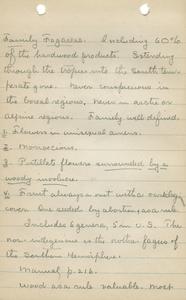 Family Fagaceae. Including 60%
of the hardwood products. Extending
through the tropics into the South tem-
perate zone. Never conspicuous in
the boreal regions, never in arctic or
alpine regions. Family well defined.
1. Flowers in unisexual aments.
2. Monoecious.
3. Pistillate flowers surrounded by a
woody involucre.
4. Fruit always a nut with a
cover. One seeded by abortion, as a rule.
Includes 6 genera, 5 in U.S. The
non-indigenous is the of
the Southern Hemisphere.
Manual p. 216.
Wood as a rule valuable, most